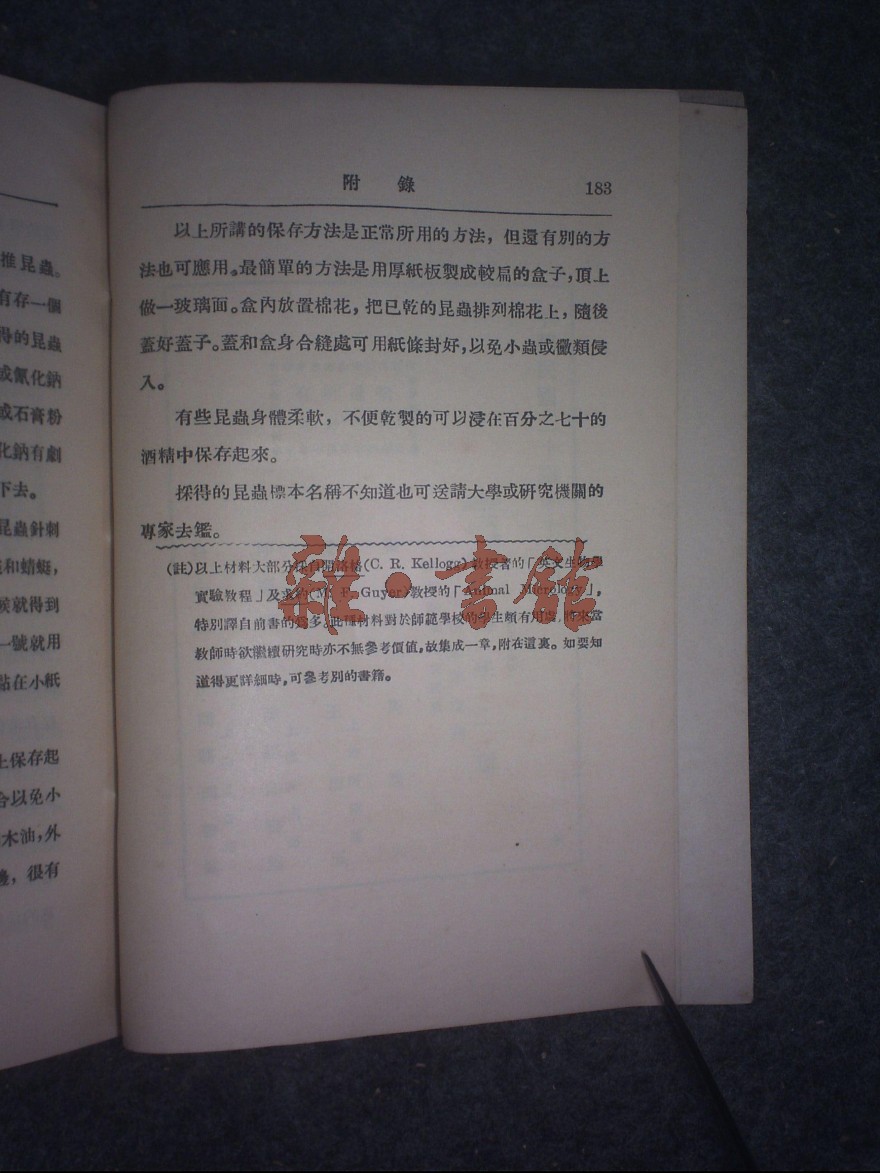 附錄
183
以上所講的保存方法是正常所用的方法，但還有別的方
法也可應用。最簡單的方法是用厚紙板製成較扁的盒子，頂上
做一玻璃面。盒內放置棉花，把已乾的昆蟲排列棉花上，隨後
蓋好蓋子。蓋和盒身合縫處可用紙條封好，以免小蟲或黴類侵
入。
有些昆蟲身體柔軟，不便乾製的可以浸在百分之七十的
酒精中保存起來。
採得的昆蟲標本名稱不知道也可送請大學或研究機關的
專家去鑑。
(註)以上材料大部分採自 (C. R. Kellogg) 教授著的「英文生物學
實驗教程」及 (M. F. Guyer)教授的「Animal Micrology」，
特別譯自前書的為多。此種材料對於師範學校的學生頗有用處，將來當
教師時欲繼續研究時亦不無參考價值，故集成一章，附在這裏。如要知
道得更詳細時，可參考別的書籍。
雜·書館
推昆蟲。
有存一個
得的昆蟲
或氰化鈉
或石膏粉
化鈉有劇
下去。
昆蟲針刺
和蜻蜓，
候就得到
一號就用
站在小紙
上保存起
合以免小
木油，外
，很有